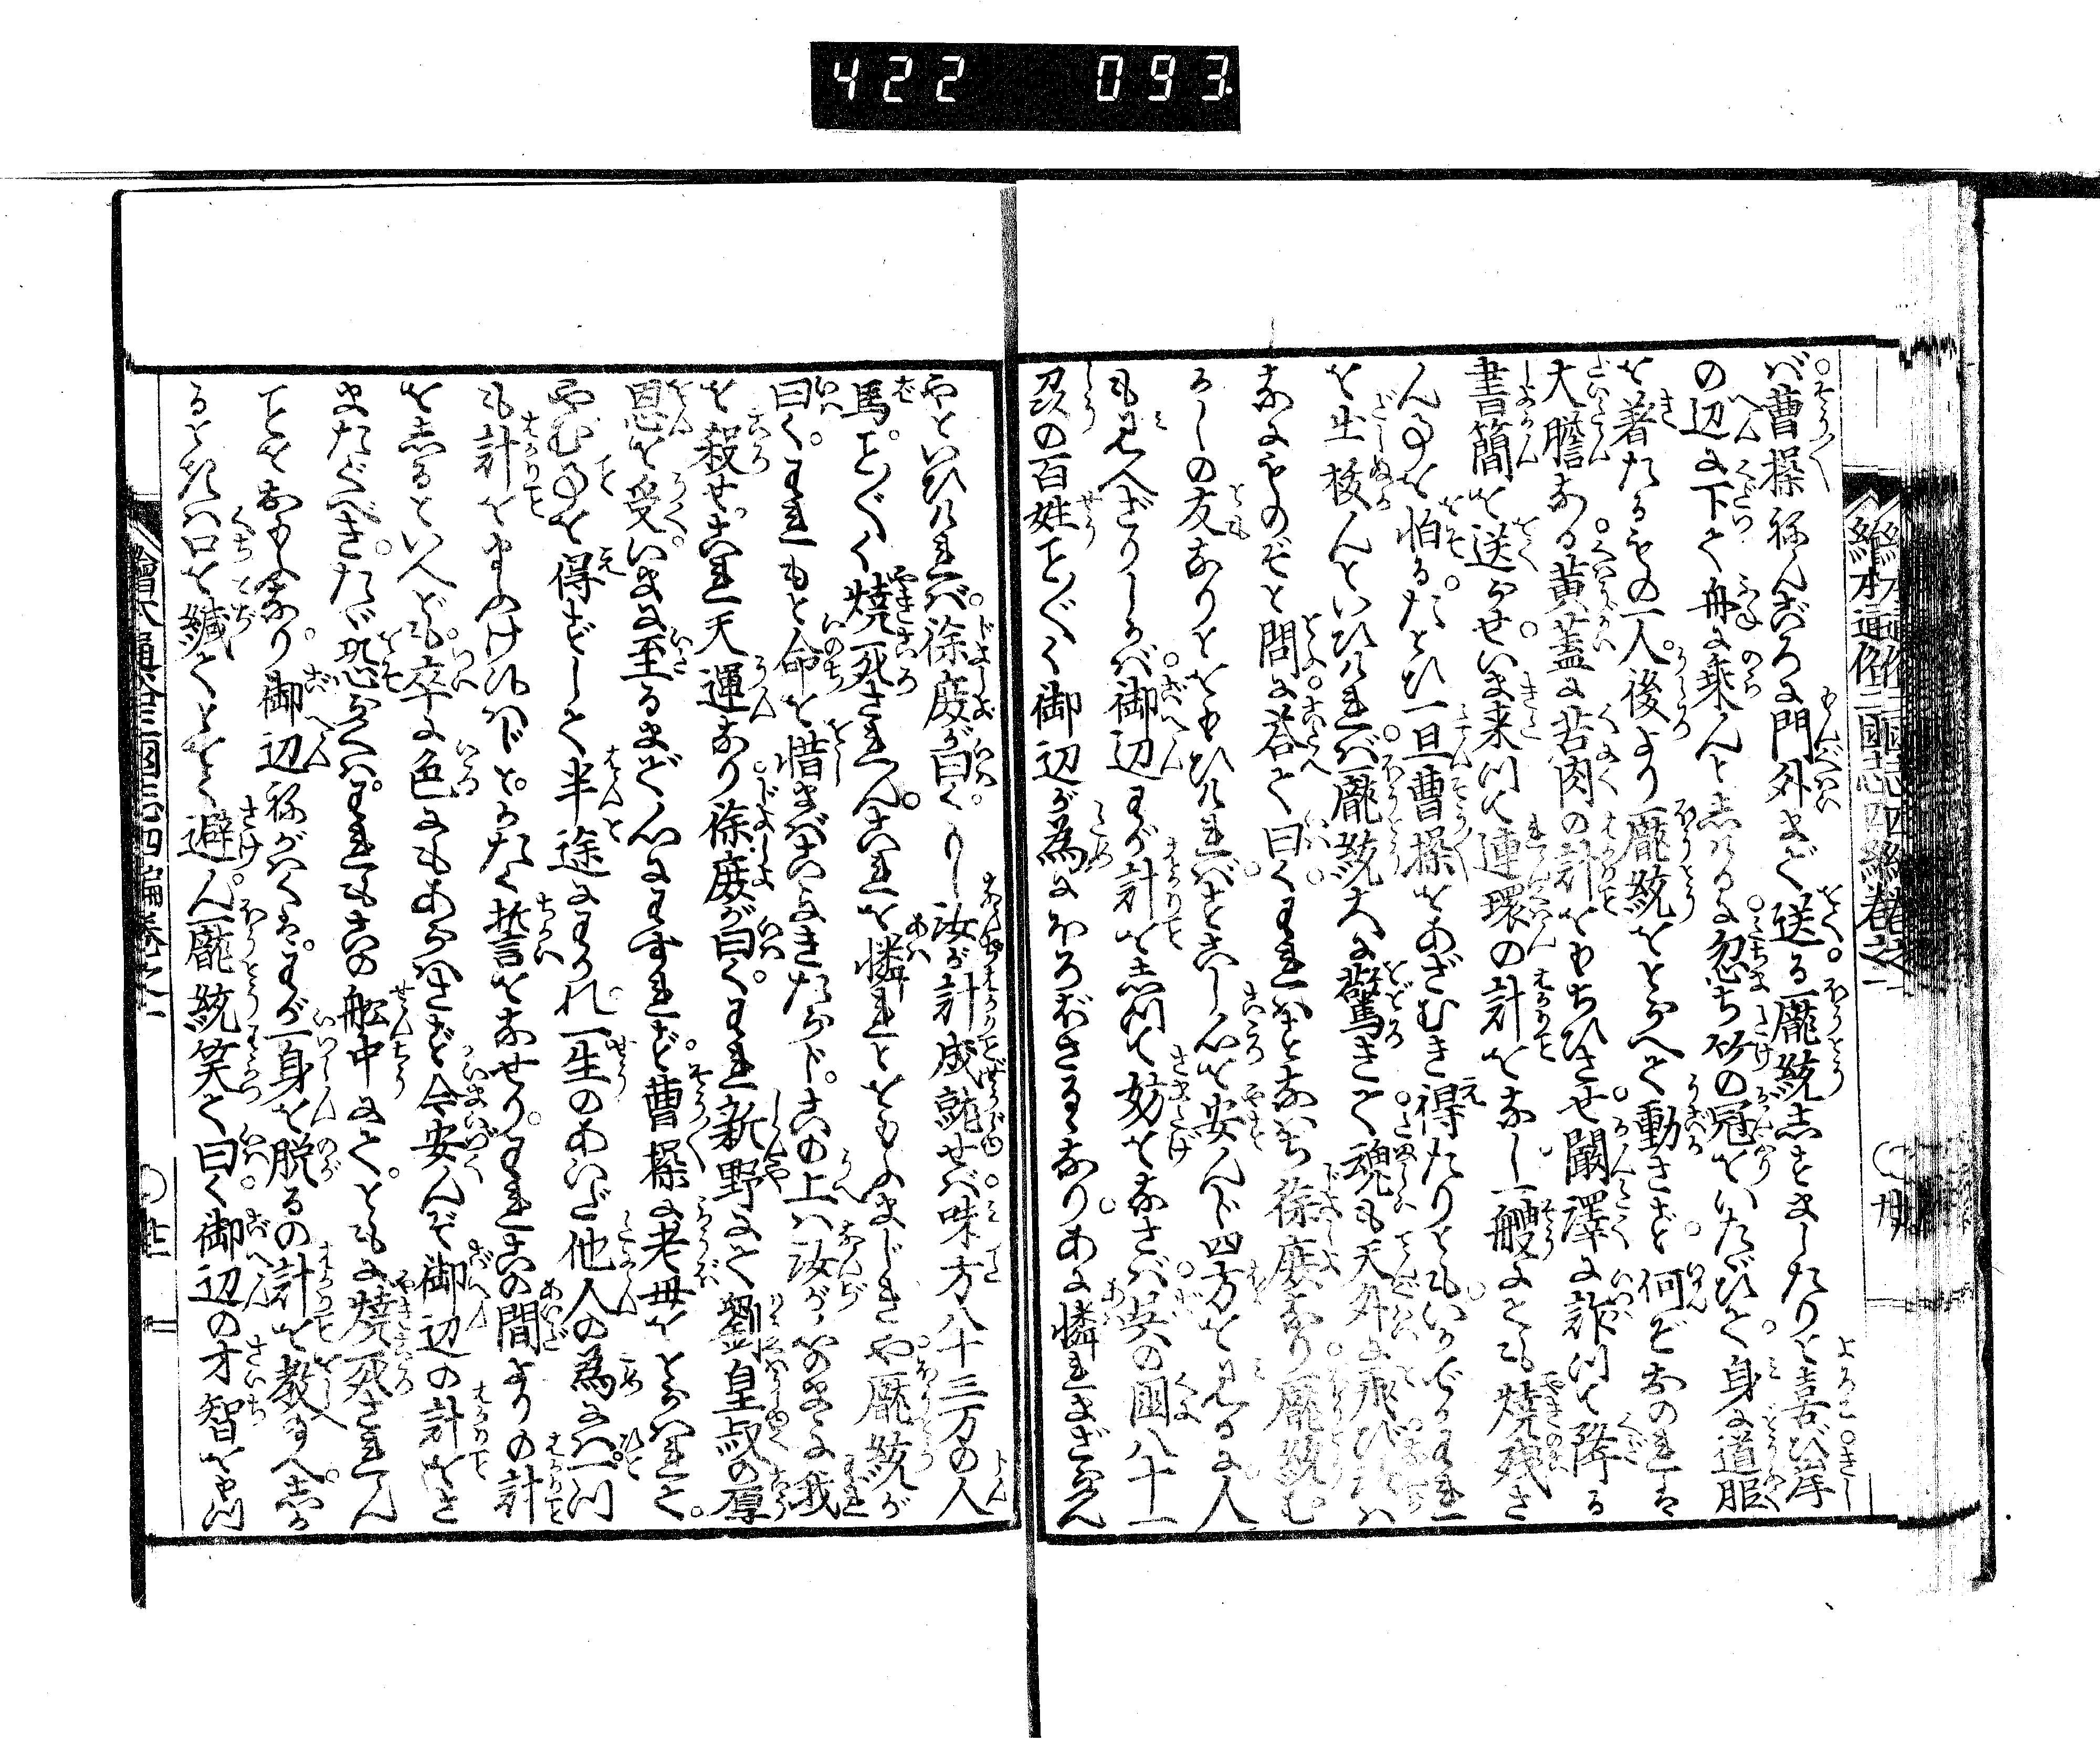 422 093
ば曹操ねんごろに門外まで送る龐統志すましたりと喜び岸
の辺に下て舟に乗んと志けるに忽ち竹の冠をいたゞひて身に道服
を着たるもの一人後より龐統をとらへて動さず何ぞおのれは
大膽なる黄蓋に苦肉の計をもちひさせ闞澤に詐つて降る
書簡を送らせいま来つて連環の計をなし一艘にても焼残さ
ん事を怕るたとひ一旦曹操をあざむき得たりともいかでかわれ
を出抜んといひければ龐統大に驚きて魂も天外に飛びければ
なにものぞと問に答て曰くわれはすなはち徐庶なり龐統む
かしの友なりとをもひければすこし心を安んじ四方を見るに人
も見へざりしかば御辺わが計を志つて妨をなさば呉の国八十一
刕の百姓ことごとく御辺が為にほろぼさるゝなりあに憐まざらん
やといひければ徐庶が曰くもし汝が計成就せば味方八十三万の人
馬ことごとく焼死されんこれを憐まとをもふまじきや龐統が
曰くわれもと命を惜まばこゝにきたらじこの上は汝が心のまゝに我
を殺せこれ天運なり徐庶が曰くわれ新野にて劉皇叔の厚
恩を受いまに至るまで心にわすれず曹操に老母をとらはれて
やむ事を得ずして半途にわかれ一生のあいだ他人の為には一つ
も計をまふけじとかたく誓をなせりわれこの間よりの計
を志るといへども卒に色にもあらはさず今安んぞ御辺の計をさ
またぐべきたゞ恐らくはわれもこの舩中にてともに焼死されん
ことをおもふなり御辺ねがはくはわが一身を脱るの計を教給へ志か
るときは口を緘てよそに避ん龐統笑て曰く御辺の才智をもつ